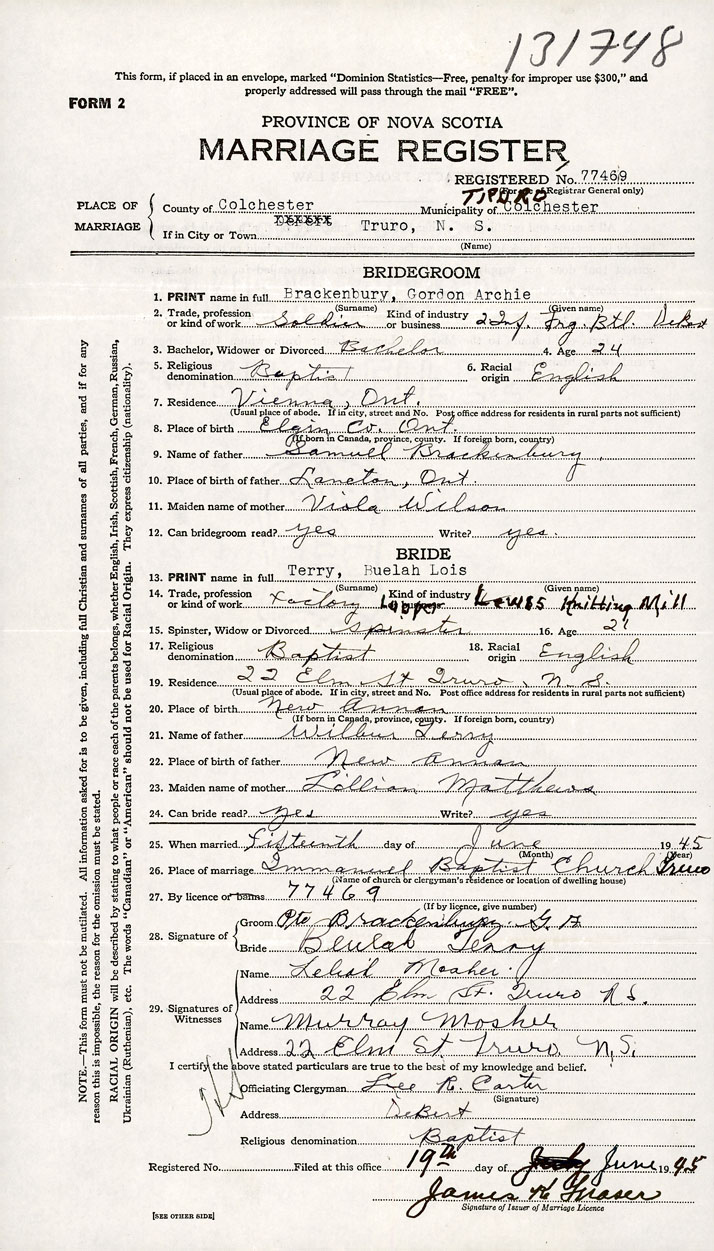 131748
This form, if placed in an envelope, marked "Dominion Statistics—Free, penalty for improper use $300," and
properly addressed will pass through the mail "FREE".
FORM 2
PROVINCE OF NOVA SCOTIA
MARRIAGE REGISTER
REGISTERED No. 77469
(For use of Registrar General only)
TRURO
PLACE OF MARRIAGE
County of Colchester Municipality of Colchester
If in City or Town Truro, N. S.
(Name)
BRIDEGROOM
1. PRINT name in full Brackenbury, Gordon Archie
(Surname) (Given name)
2. Trade, profession or kind of work Soldier Kind of industry or business Trg. Btl. Debert
3. Bachelor, Widower or Divorced Bachelor 4. Age 24
5. Religious denomination Baptist 6. Racial origin English
7. Residence Vienna, Ont.
(Usual place of abode. If in city, street and No. Post office address for residents in rural parts not sufficient)
8. Place of birth Elgin Co. Ont.
(If born in Canada, province, county. If foreign born, country)
9. Name of father Samuel Brackenbury
10. Place of birth of father Langton, Ont.
11. Maiden name of mother Viola Wilson
12. Can bridegroom read? yes Write? yes.
BRIDE
13. PRINT name in full Terry, Buelah Lois
(Surname) (Given name)
14. Trade, profession or kind of work Factory Kind of industry Lewis Knitting Mill
15. Spinster, Widow or Divorced Spinster 16. Age 21
17. Religious denomination Baptist 18. Racial origin English
19. Residence 22 Elm St Truro. N. S.
(Usual place of abode. If in city, street and No. Post office address for residents in rural parts not sufficient)
20. Place of birth New Annan
(If born in Canada, province, county. If foreign born, country)
21. Name of father Wilbur Terry
22. Place of birth of father New Annan
23. Maiden name of mother Lillian Matthews
24. Can bride read? yes Write? yes
25. When married fifteenth day of June 1945
(Month) (Year)
26. Place of marriage Immanuel Baptist Church Truro
(Name of church or clergyman's residence or location of dwelling house)
27. By licence or banns 77469
(If by licence, give number)
28. Signature of
Groom Pte Brackenbury. G A
Bride Beulah Terry
29. Signatures of Witnesses
Name Mosher.
Address 22 Elm St. Truro N.S.
Name Murray Mosher
Address 22 Elm St Truro N.S.
I certify the above stated particulars are true to the best of my knowledge and belief.
Officiating Clergyman Lee R. Carter
(Signature)
Address Debert
Religious denomination Baptist
Registered No. Filed at this office 19th day of June 1945
James K Fraser
Signature of Issuer of Marriage Licence
[SEE OTHER SIDE]
NOTE.—This form must not be mutilated. All information asked for is to be given, including full Christian and surnames of all parties, and if for any
reason this is impossible, the reason for the omission must be stated.
RACIAL ORIGIN will be described by stating to what people or race each of the parents belongs, whether English, Irish, Scottish, French, German, Russian,
Ukrainian (Ruthenian), etc. The words "Canadian" or "American" should not be used for Racial Origin. They express citizenship (nationality).